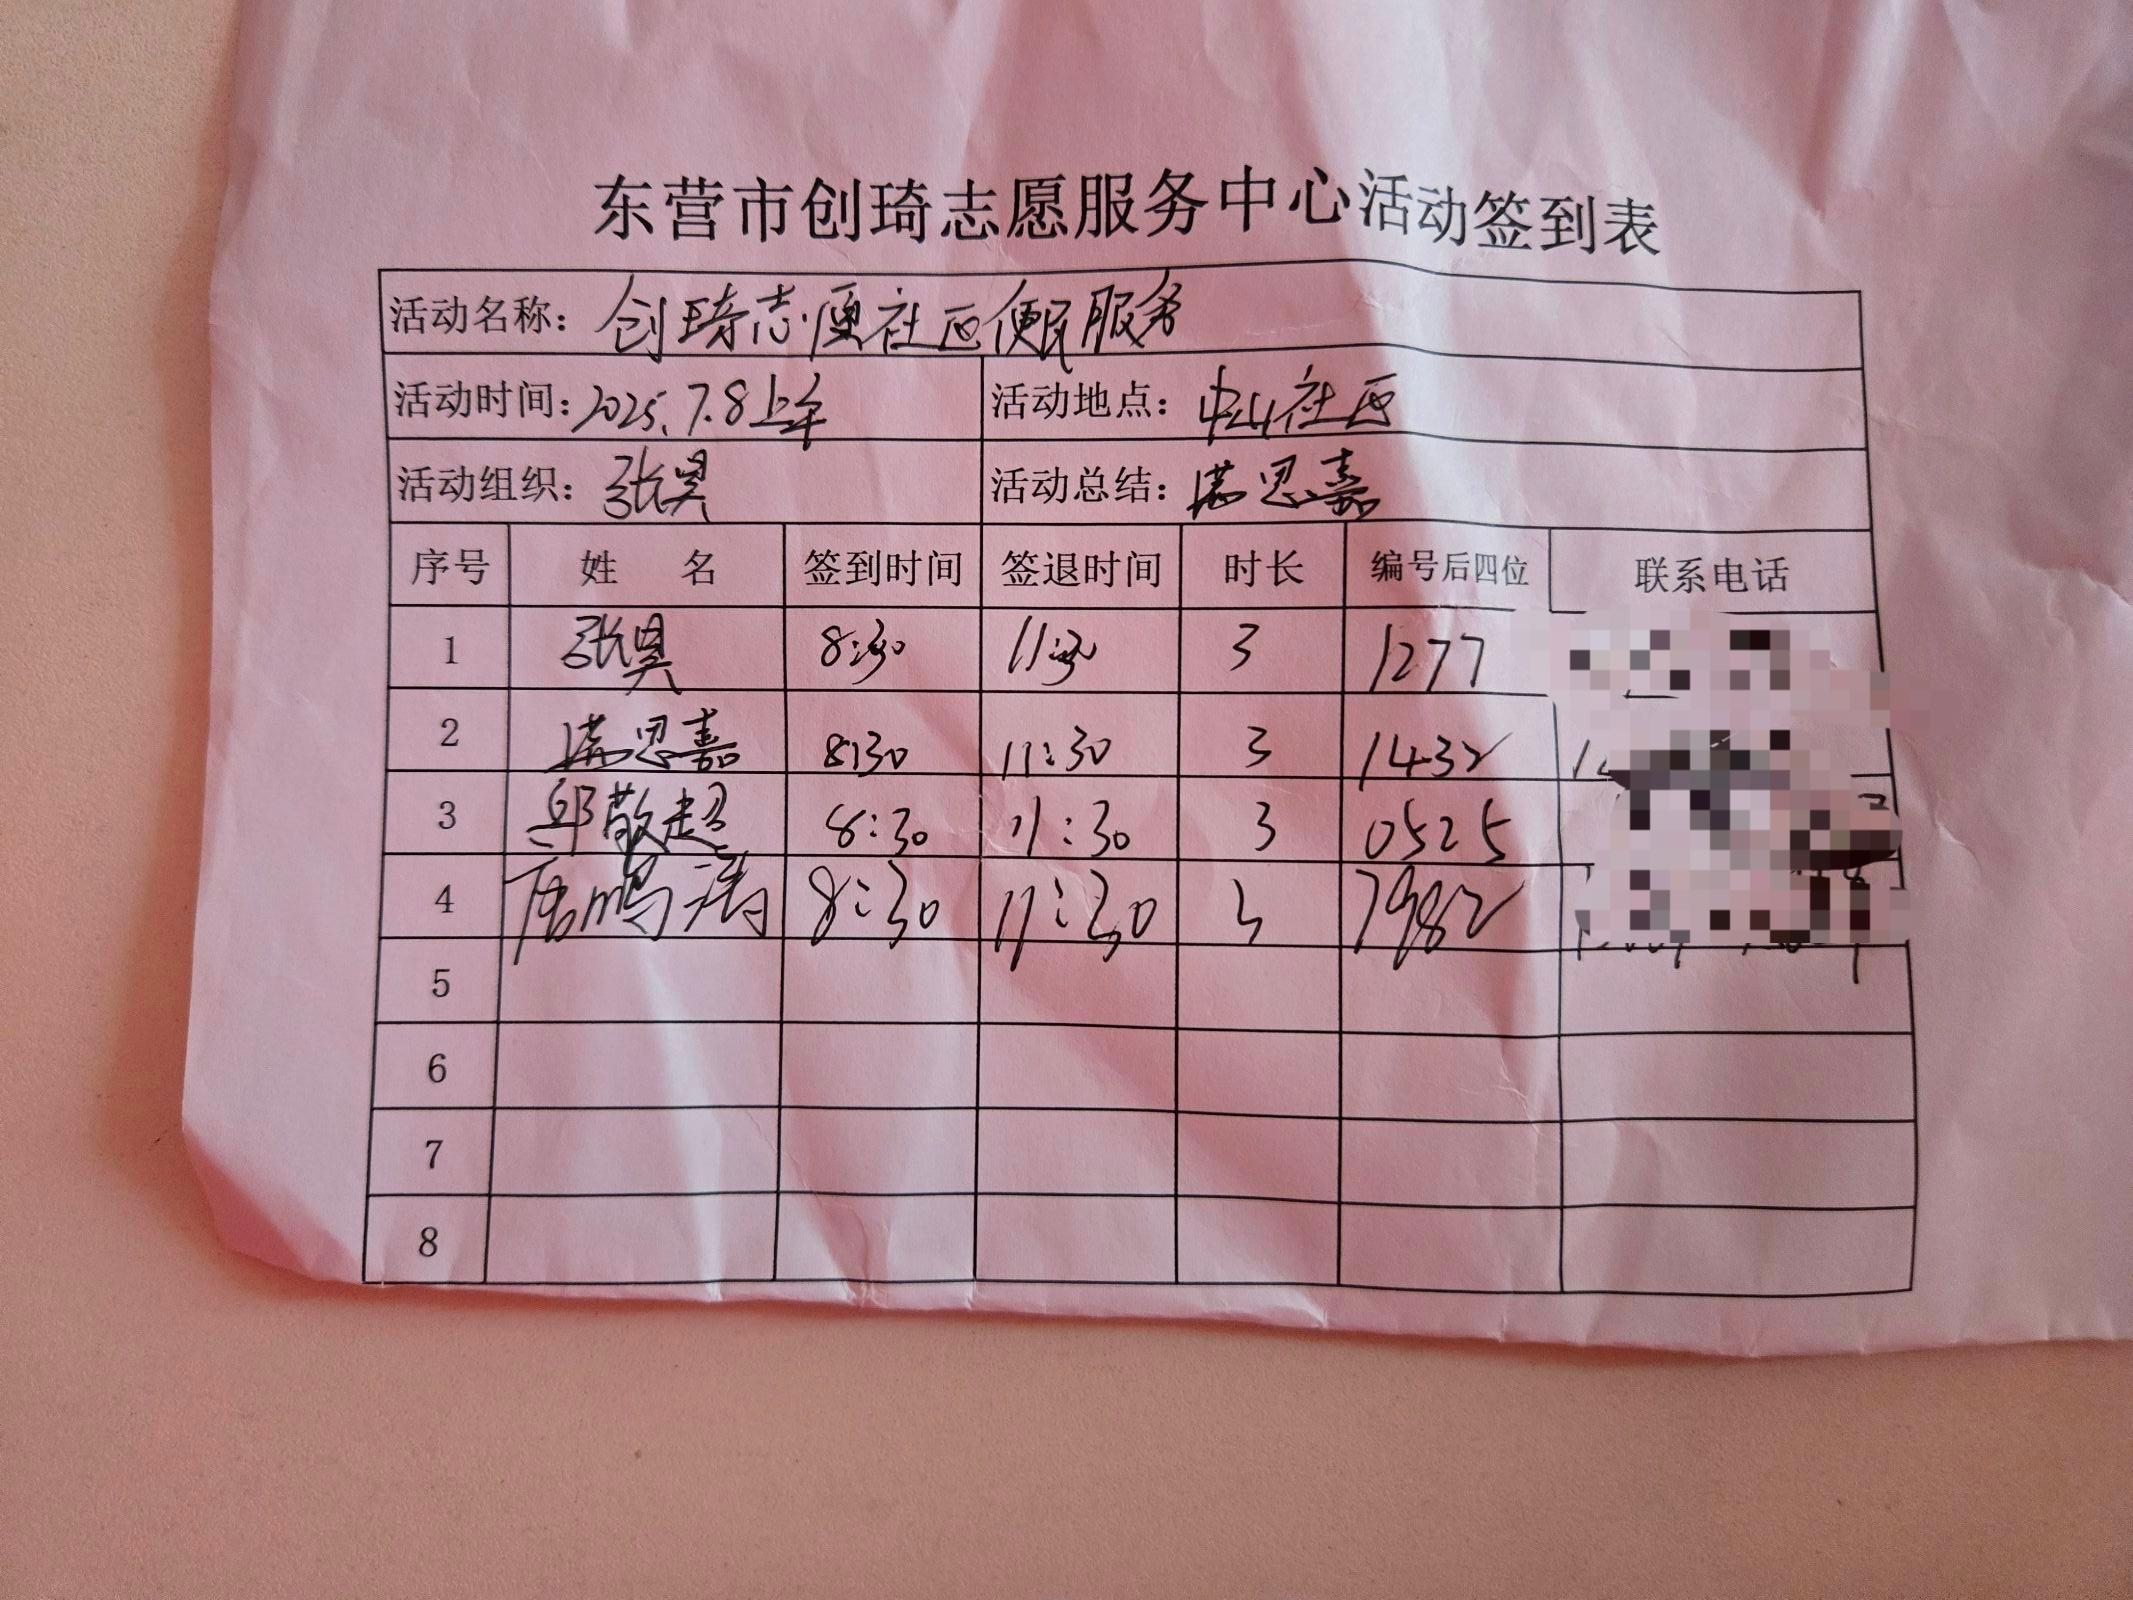 东营市创琦志愿服务中心活动签到表
活动名称：创琦志愿社区便民服务
活动时间：2025.7.8上午 活动地点：中山社区
活动组织：张昊 活动总结：满思嘉
序号 姓名 签到时间 签退时间 时长 编号后四位 联系电话
1 张昊 8:30 11:30 3 1277
2 满思嘉 8:30 11:30 3 1432
3 邱敬超 8:30 11:30 3 0525
4 唐鹏涛 8:30 11:30 3 7982
5
6
7
8